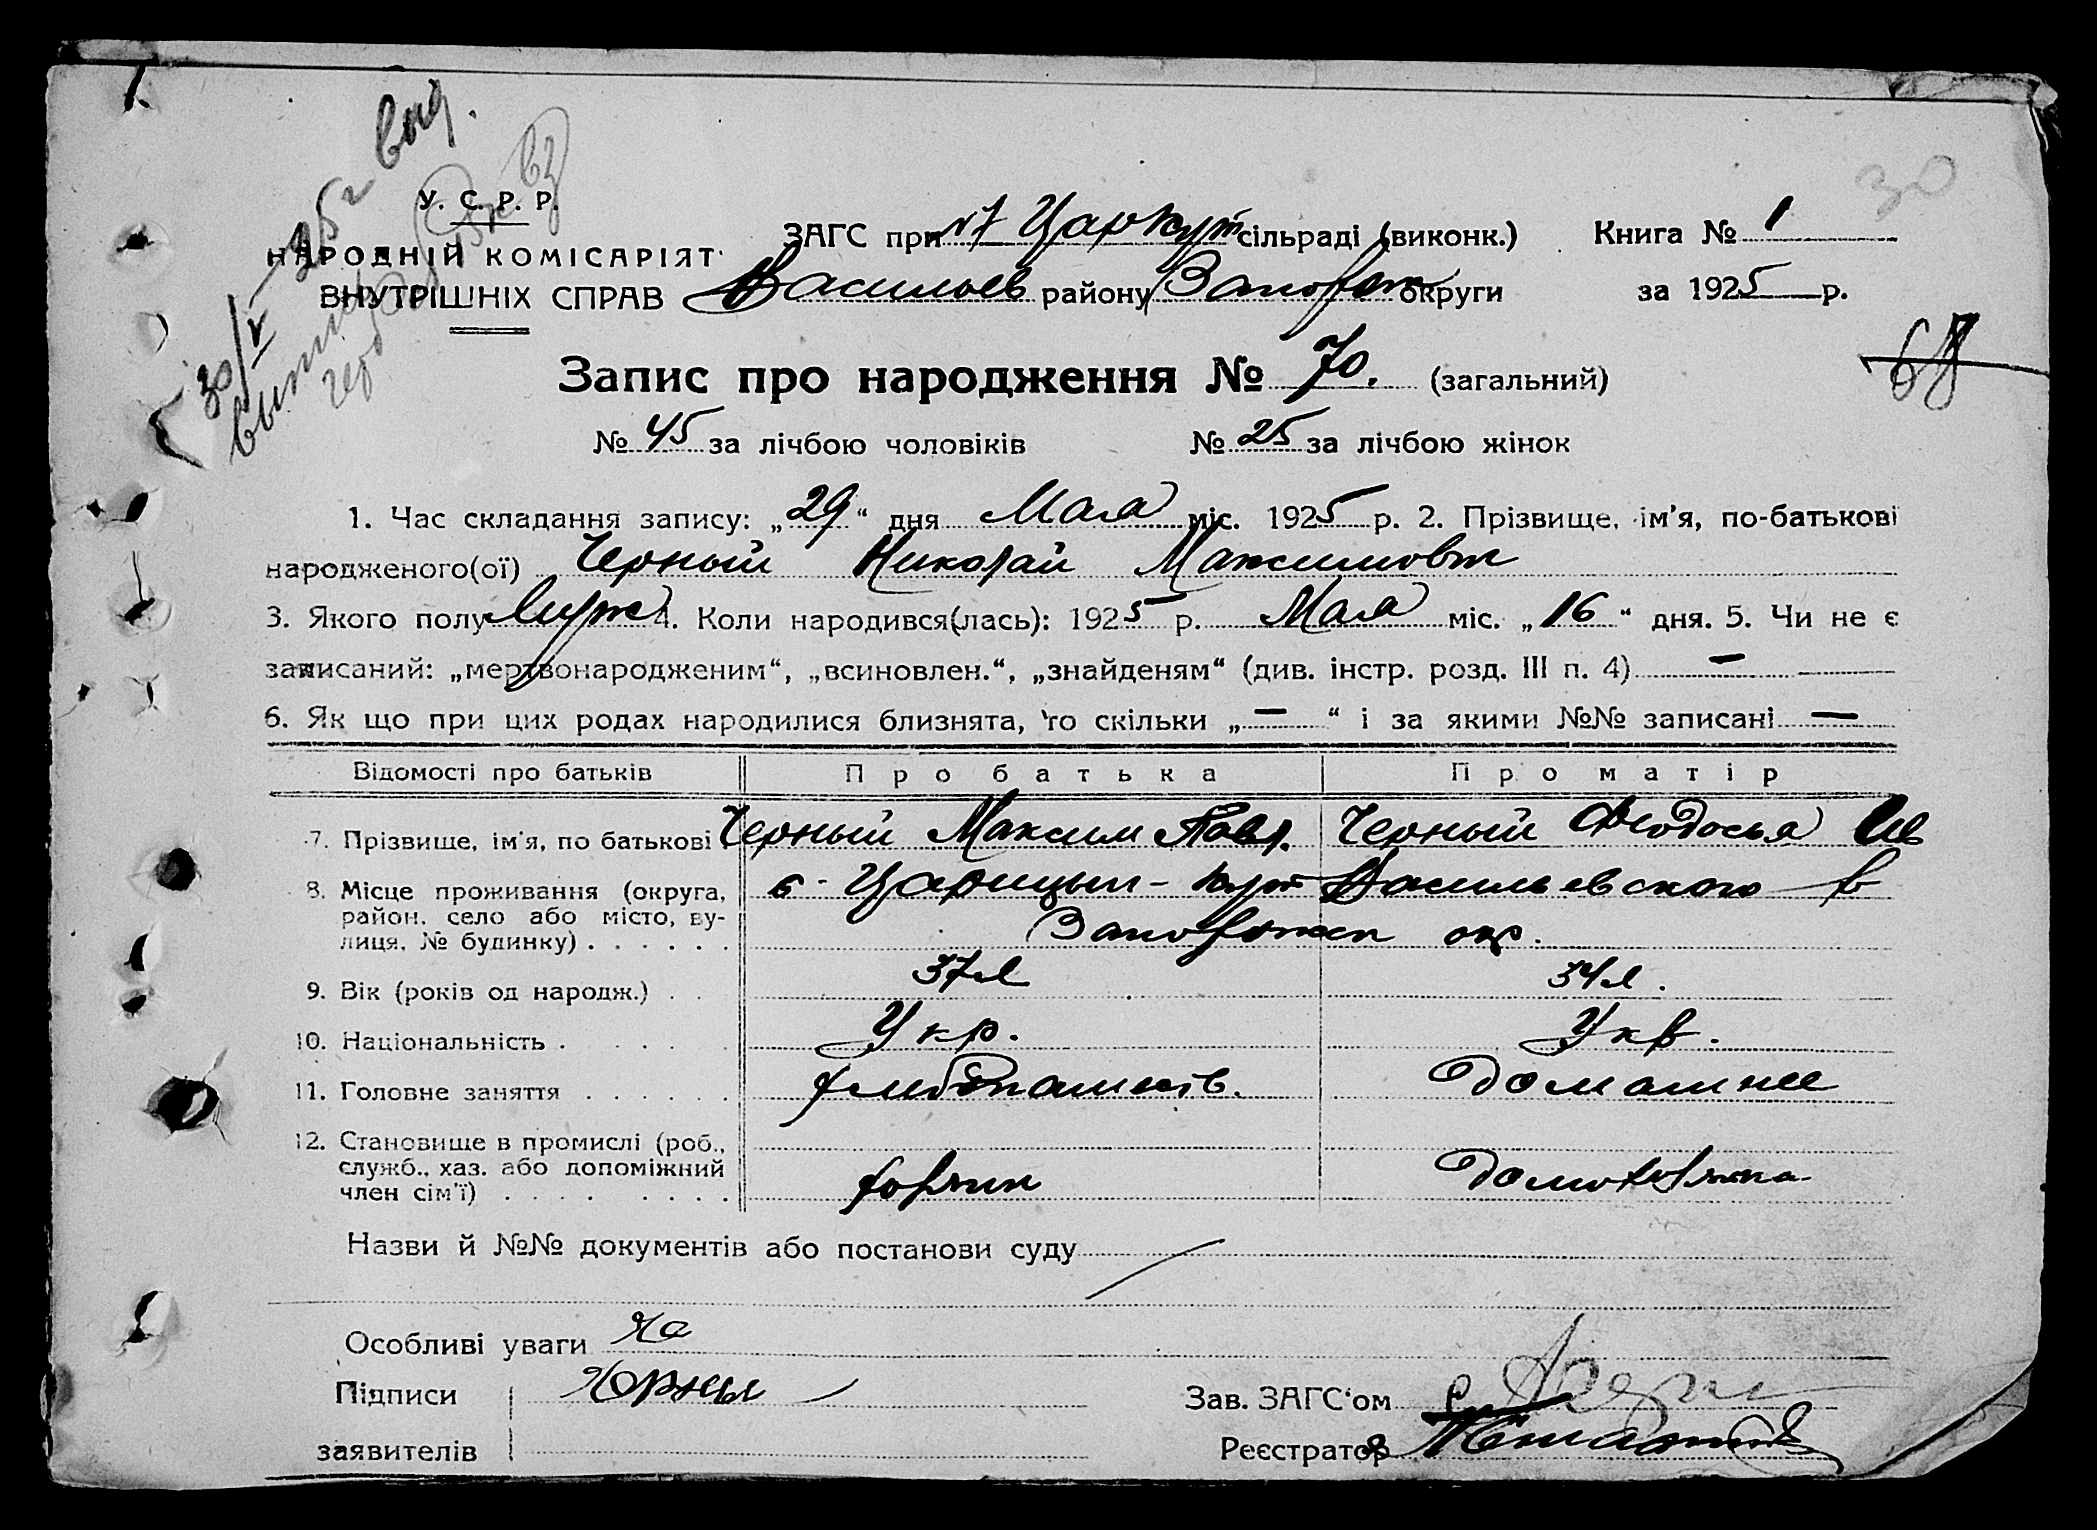 30/V – 25 г выд.
выпись
У. С. Р. Р.
НАРОДНІЙ КОМІСАРІЯТ
ВНУТРІШНІХ СПРАВ
30
ЗАГС при Царкут сільраді (виконк.) Книга № 1
Васильев району Запорож округи за 1925 р.
Запис про народження № 70. (загальний)
68
№ 45 за лічбою чоловіків № 25 за лічбою жінок
1. Час складання запису: „29“ дня Мая міс. 1925 р. 2. Прізвище, ім’я, по-батькові
народженого(ої) Черный Николай Максимович
3. Якого полу Муж 4. Коли народився(лась): 1925 р. Мая міс. „16“ дня. 5. Чи не є
записаний: „мертвонародженим“, „всиновлен.“, „знайденям“ (див. інстр. розд. III п. 4) —
6. Як що при цих родах народилися близнята, то скільки „—“ і за якими №№ записані —
Відомості про батьків Про батька Про матір
7. Прізвище, ім’я, по батькові Черный Максим Павл. Черный Феодосья Ив
8. Місце проживання (округа, с. Царицын-Кут Васильевского р
район, село або місто, ву-
лиця, № будинку) . . . . . . Запорожск окр.
9. Вік (років од народж.) . . 37 л 34 л.
10. Національність . . . . . Укр. Укр.
11. Головне заняття . . . . . . хлебопашеств. домашнее
12. Становище в промислі (роб.,
служб., хаз. або допоміжний хозяин домохозяйка
член сім’ї) . . . . . . . .
Назви й №№ документів або постанови суду
Особливі уваги
Підписи Чорный
Зав. ЗАГС‘ом
заявителів Реєстратор